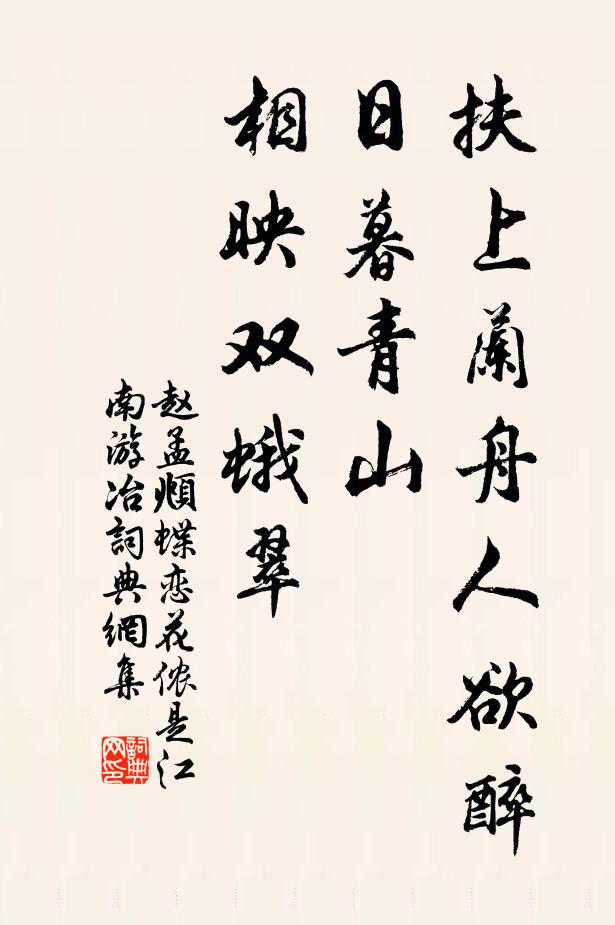 扶上蘭舟人欲醉
日暮青山
相映双蛾翠
赵孟頫蝶恋花侬是江
南游冶詞典網集
詞典
网印